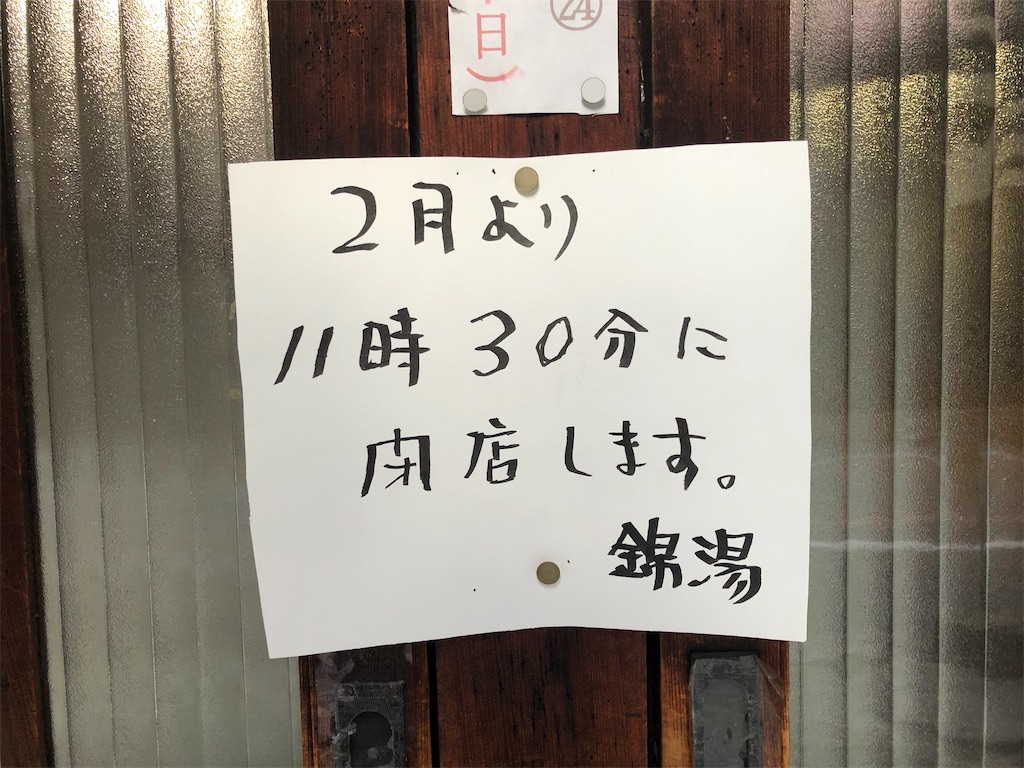 ㉔
日)
2月より
11時30分に
閉店します。
錦湯